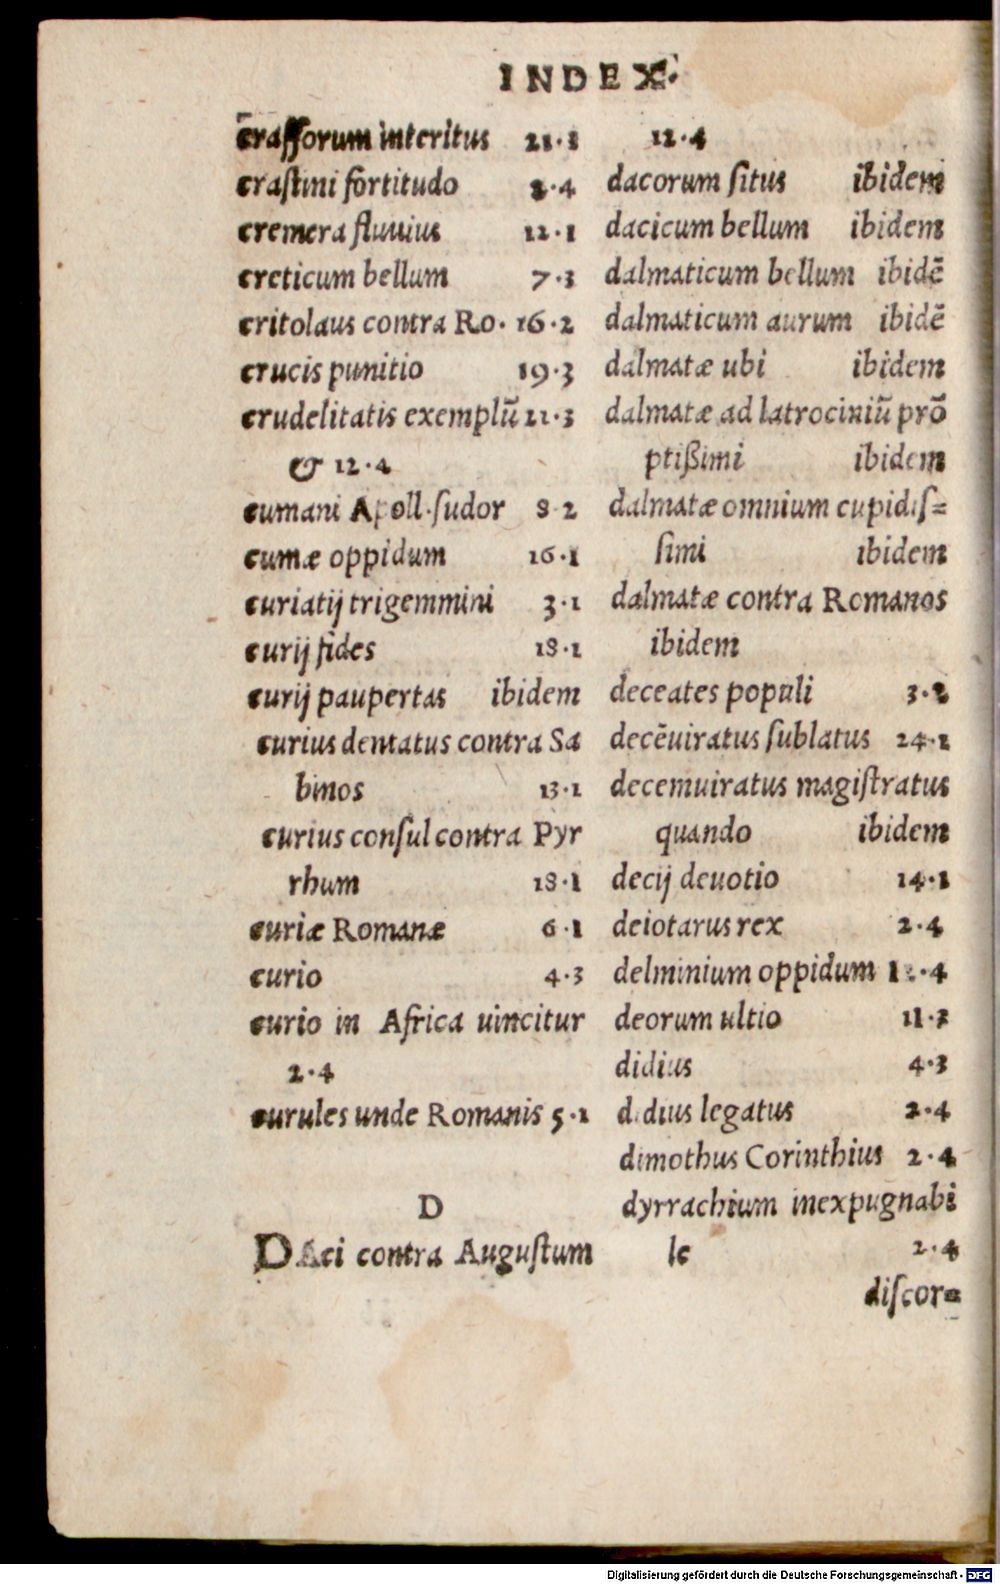 INDEX.
crassorum interitus 21.3
craſtini fortitudo 2.4
cremera fluuius 12.1
creticum bellum 7.3
critolaus contra Ro. 16.2
crucis punitio 19.3
crudelitatis exemplũ 11.3
& 12.4
cumani Apoll.ſudor 8.2
cumæ oppidum 16.1
curiatij trigemmini 3.1
curij fides 18.1
curij paupertas ibidem
curius dentatus contra Sa
binos 13.1
curius conſul contra Pyr
rhum 18.1
curiæ Romanæ 6.1
curio 4.3
curio in Africa uincitur
2.4
curules unde Romanis 5.1
D
DAci contra Auguſtum
12.4
dacorum ſitus ibidem
dacicum bellum ibidem
dalmaticum bellum ibidẽ
dalmaticum aurum ibidẽ
dalmatæ ubi ibidem
dalmatæ ad latrociniũ prõ
ptißimi ibidem
dalmatæ omnium cupidiſ=
ſimi ibidem
dalmatæ contra Romanos
ibidem
deceates populi 3.2
decẽuiratus ſublatus 24.1
decemuiratus magiſtratus
quando ibidem
decij deuotio 14.1
deiotarus rex 2.4
delminium oppidum 12.4
deorum ultio 11.3
didius 4.3
didius legatus 2.4
dimothus Corinthius 2.4
dyrrachium inexpugnabi
le 2.4
diſcor=
Digitalisierung gefördert durch die Deutsche Forschungsgemeinschaft - DFG